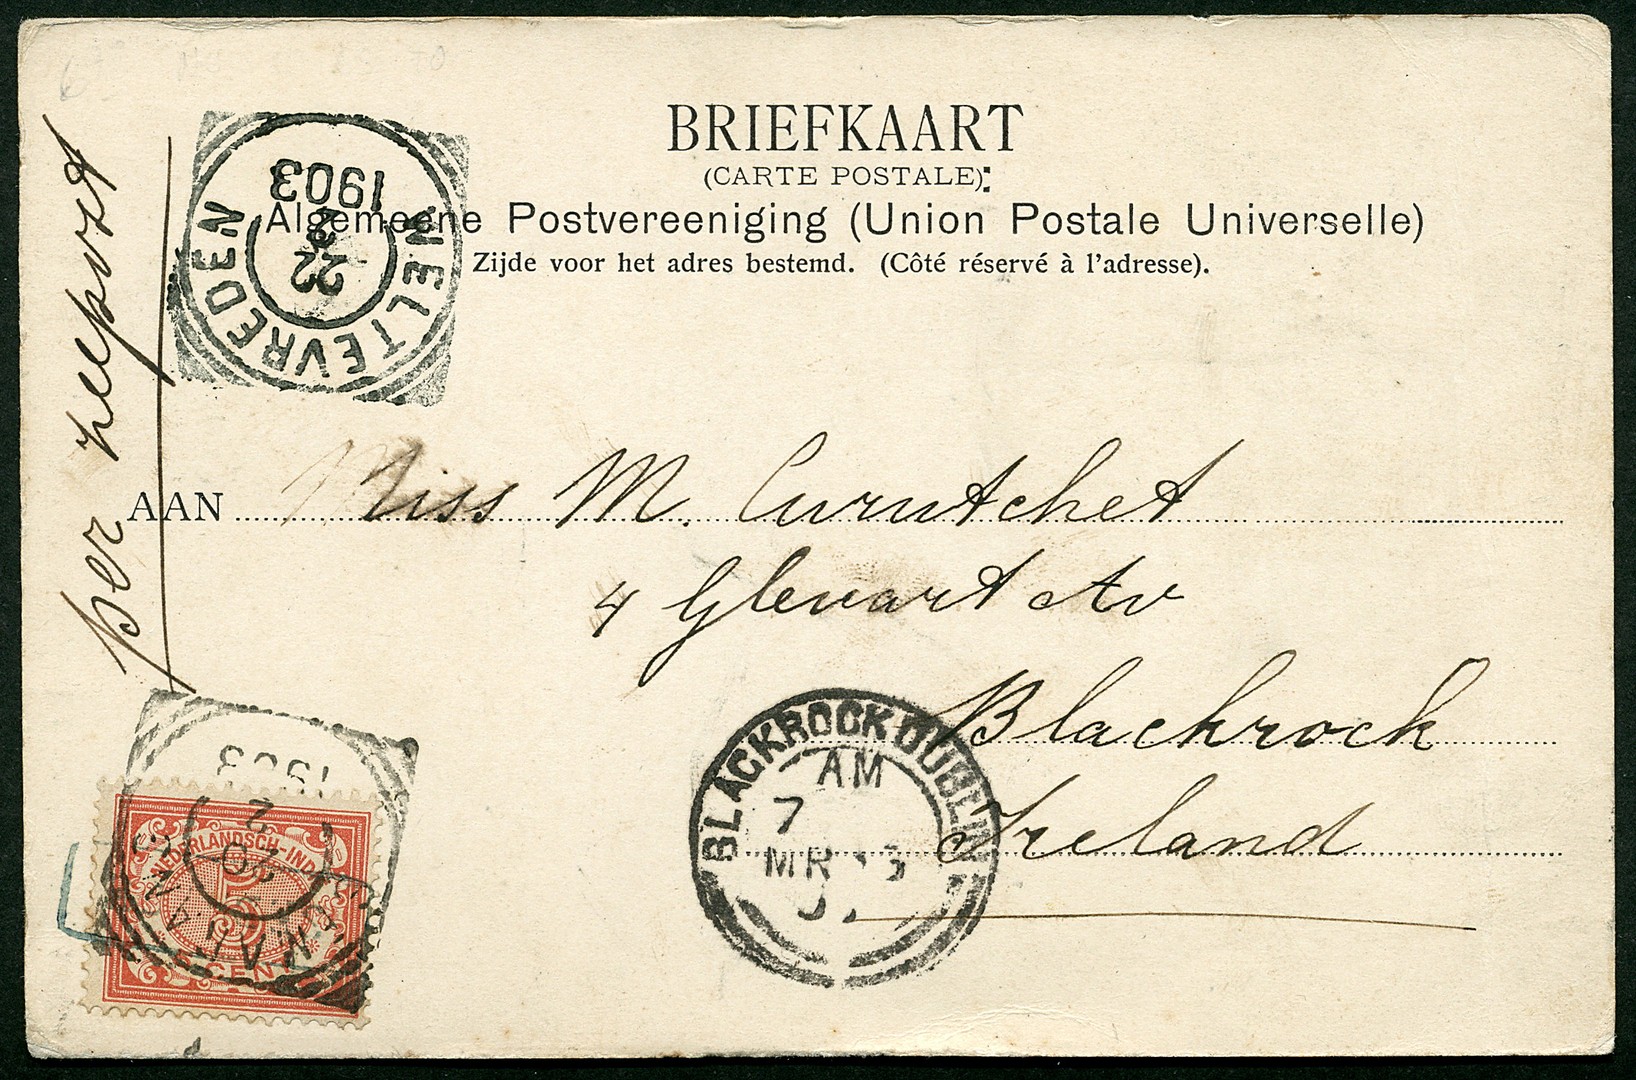 BRIEFKAART
(CARTE POSTALE):
Algemeene Postvereeniging (Union Postale Universelle)
Zijde voor het adres bestemd. (Côté réservé à l'adresse).
WELTEVREDEN
22
2
1903
per zeepost
AAN Miss M. Curutchet
4 Glenart Av
Blackrock
Ireland
BLACKROCK DUBLIN
AM
7
MR
NEDERLANDSCH-INDIË
5
5 CENT
20
2
1903